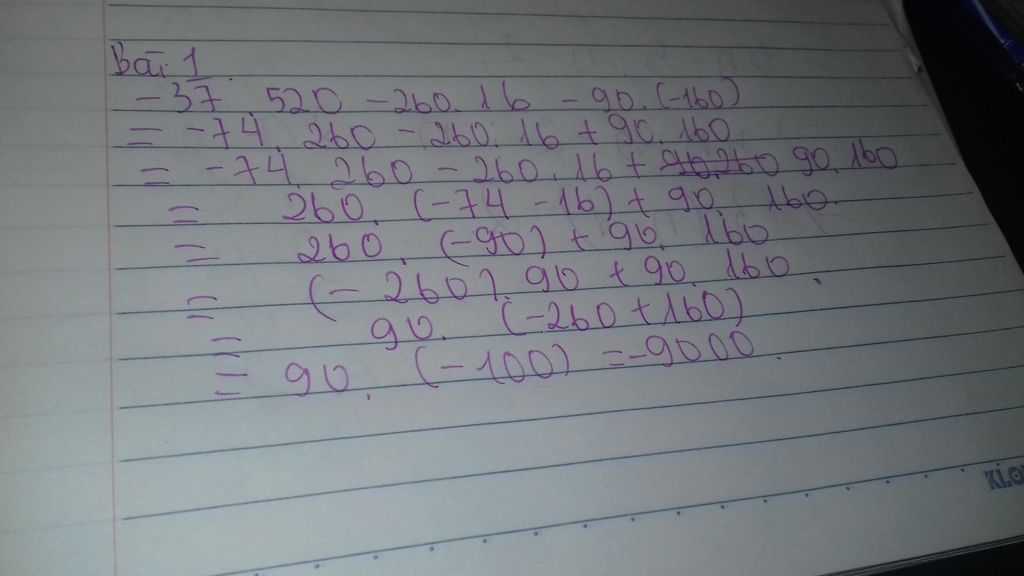 Bài 1
-37. 520 - 260. 16 - 90. (-160)
= -74. 260 - 260. 16 + 90. 160
= -74. 260 - 260. 16 + 90. 160
= 260. (-74 - 16) + 90. 160.
= 260. (-90) + 90. 160
= (-260). 90 + 90. 160.
= 90. (-260 + 160)
= 90. (-100) = -9000.